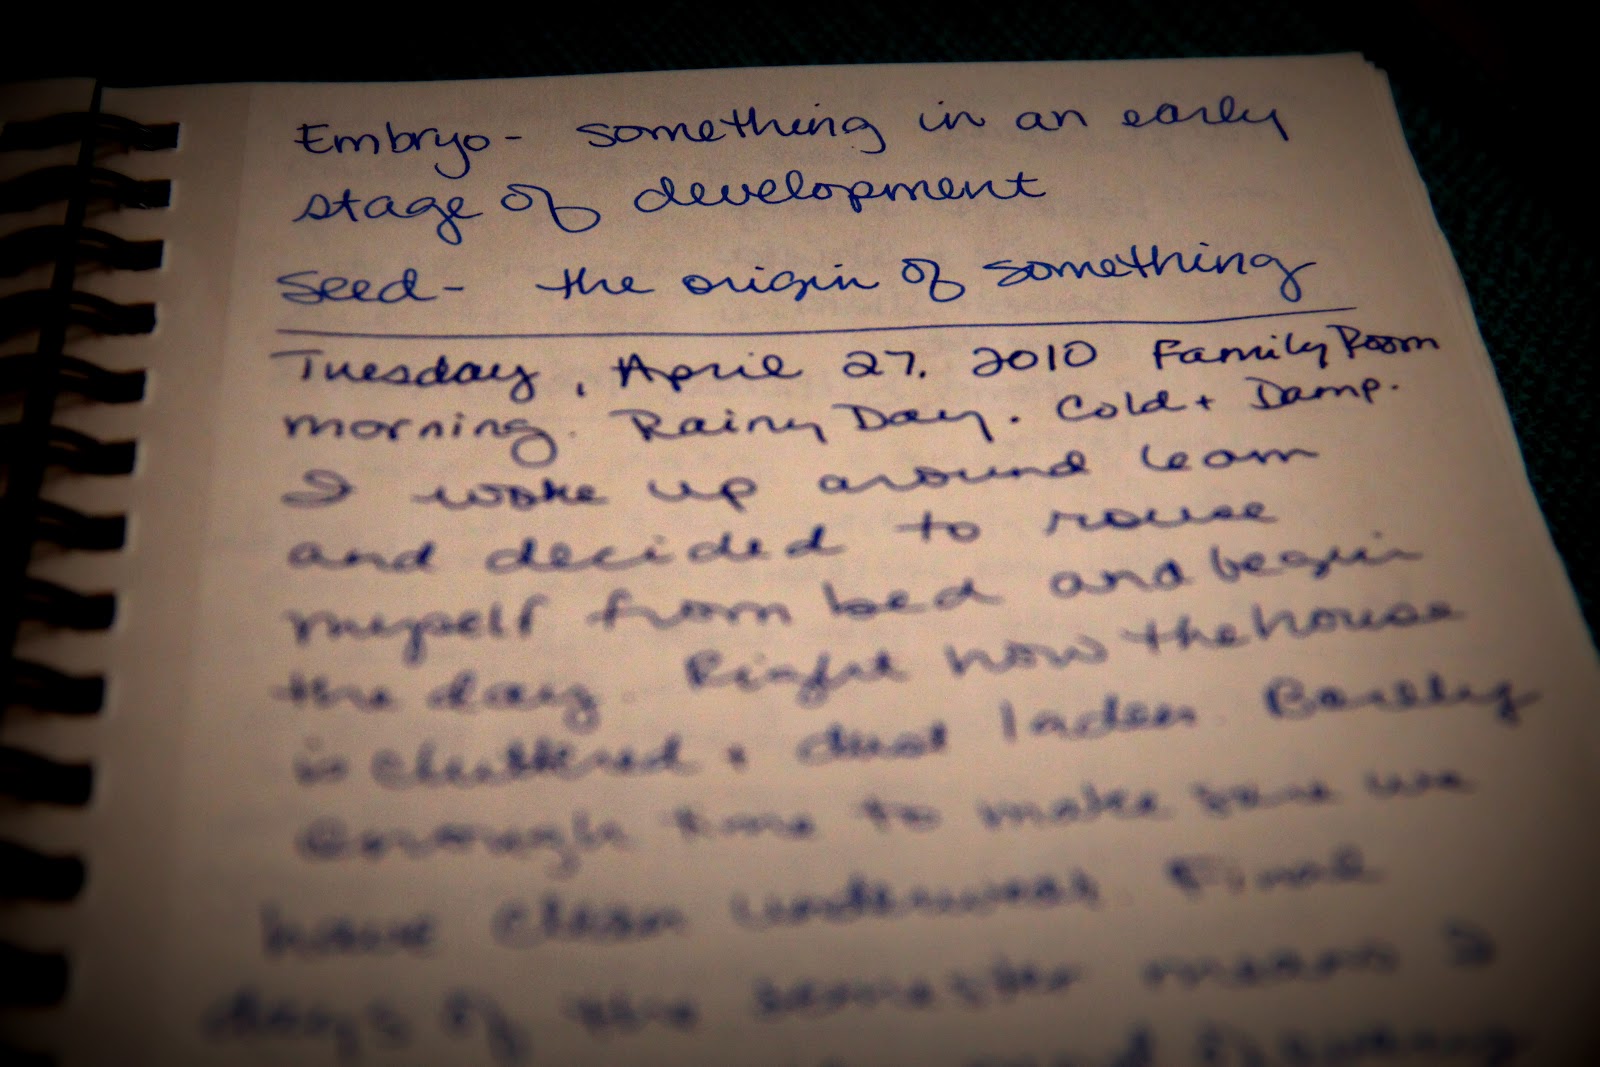 Embryo - something in an early
stage of development
Seed - the origin of something
Tuesday, April 27. 2010 Family Room
morning. Rainy Day. Cold + Damp.
I woke up around 6am
and decided to rouse
myself from bed and begin
the day. Right now the house
is cluttered + dust laden. Barely
enough time to make sure we
have clean underwear. Final
days of the semester means I